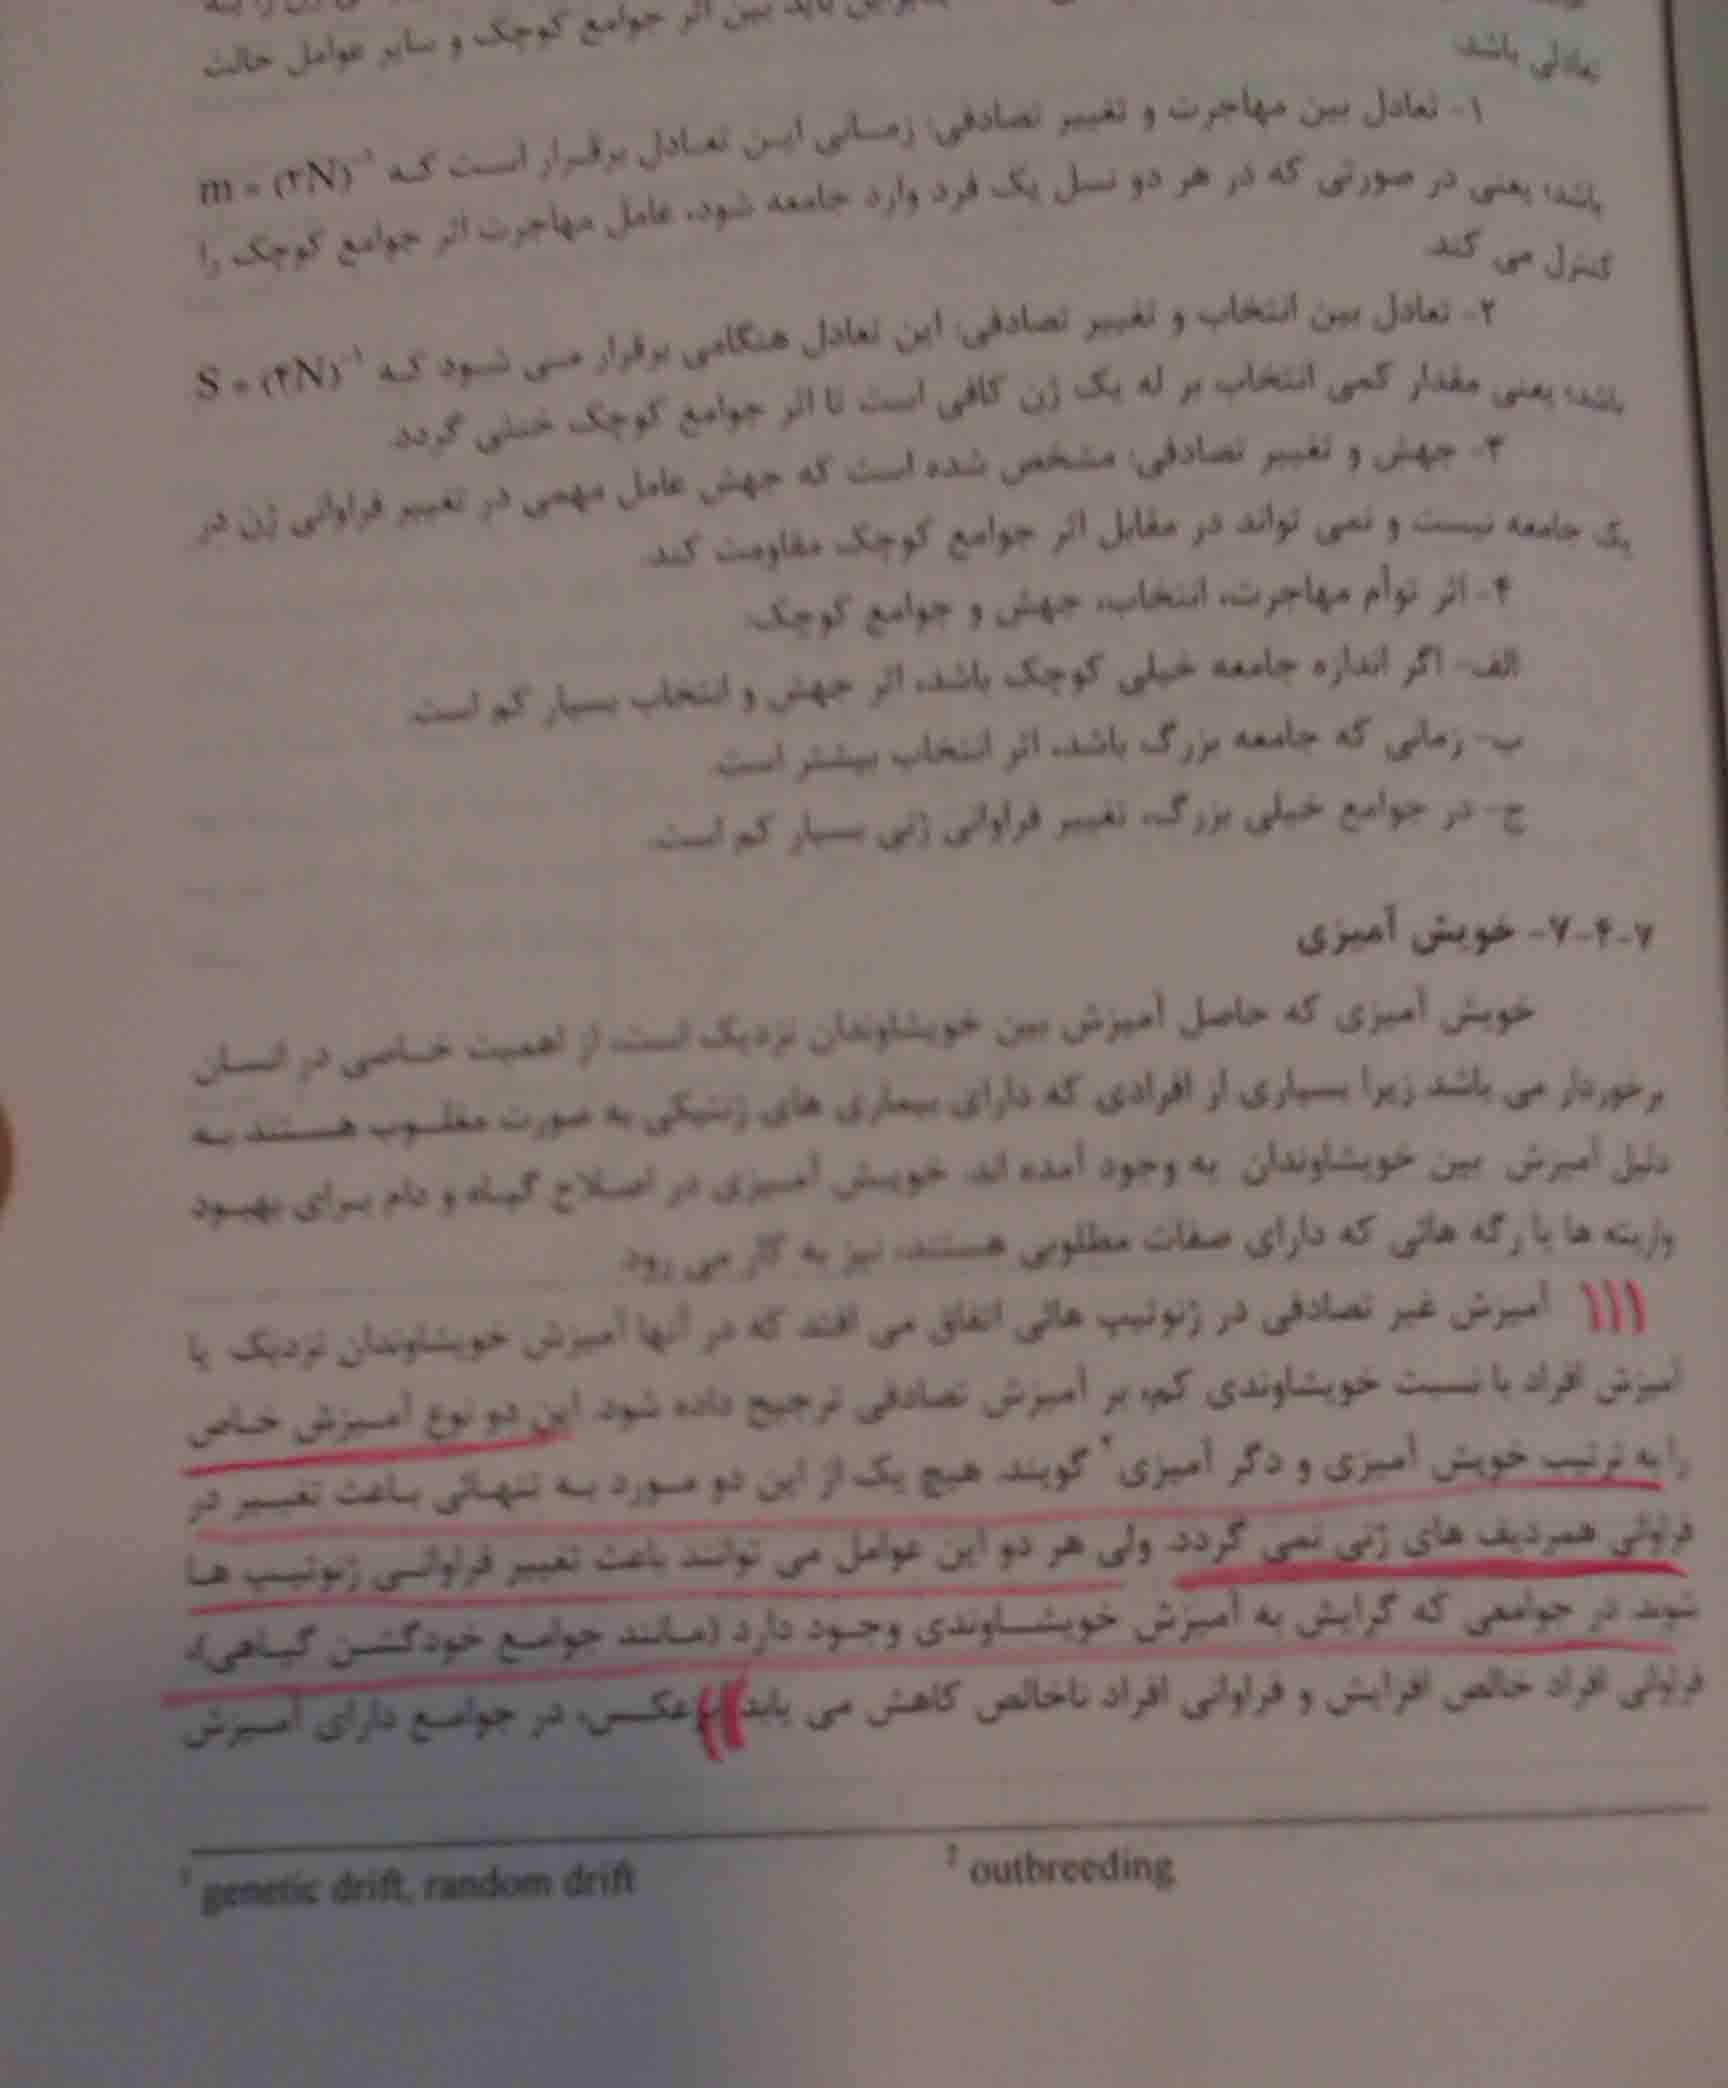 باید بین اثر جوامع کوچک و سایر عوامل حالت
تعادلی باشد.
۱- تعادل بین مهاجرت و تغییر تصادفی: زمانی این تعادل برقرار است که m = (۲N)⁻¹
باشد؛ یعنی در صورتی که در هر دو نسل یک فرد وارد جامعه شود، عامل مهاجرت اثر جوامع کوچک را
کنترل می کند.
۲- تعادل بین انتخاب و تغییر تصادفی: این تعادل هنگامی برقرار می شود که S = (۴N)⁻¹
باشد؛ یعنی مقدار کمی انتخاب بر له یک ژن کافی است تا اثر جوامع کوچک خنثی گردد.
۳- جهش و تغییر تصادفی: مشخص شده است که جهش عامل مهمی در تغییر فراوانی ژن در
یک جامعه نیست و نمی تواند در مقابل اثر جوامع کوچک مقاومت کند.
۴- اثر توأم مهاجرت، انتخاب، جهش و جوامع کوچک:
الف- اگر اندازه جامعه خیلی کوچک باشد، اثر جهش و انتخاب بسیار کم است.
ب- زمانی که جامعه بزرگ باشد، اثر انتخاب بیشتر است.
ج- در جوامع خیلی بزرگ، تغییر فراوانی ژنی بسیار کم است.
۷-۴-۷- خویش آمیزی
خویش آمیزی که حاصل آمیزش بین خویشاوندان نزدیک است، از اهمیت خاصی در انسان
برخوردار می باشد زیرا بسیاری از افرادی که دارای بیماری های ژنتیکی به صورت مغلوب هستند به
دلیل آمیزش بین خویشاوندان به وجود آمده اند. خویش آمیزی در اصلاح گیاه و دام برای بهبود
واریته ها یا رگه هائی که دارای صفات مطلوبی هستند، نیز به کار می رود.
آمیزش غیر تصادفی در ژنوتیپ هائی اتفاق می افتد که در آنها آمیزش خویشاوندان نزدیک یا
آمیزش افراد با نسبت خویشاوندی کم، بر آمیزش تصادفی ترجیح داده شود. این دو نوع آمیزش خاص
را به ترتیب خویش آمیزی و دگر آمیزی² گویند. هیچ یک از این دو مورد به تنهائی باعث تغییر در
فراوانی همردیف های ژنی نمی گردد. ولی هر دو این عوامل می توانند باعث تغییر فراوانی ژنوتیپ ها
شوند. در جوامعی که گرایش به آمیزش خویشاوندی وجود دارد (مانند جوامع خودگشن گیاهی)،
فراوانی افراد خالص افزایش و فراوانی افراد ناخالص کاهش می یابد. برعکس، در جوامع دارای آمیزش
¹ genetic drift, random drift
² outbreeding